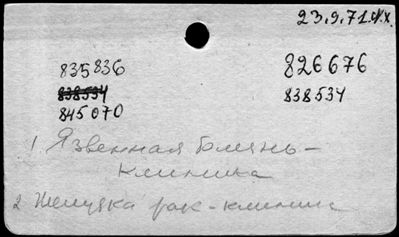 23.9.71.
835836 826676
838534 838534
845070
1 Язвенная болезнь-
клиника
2 Желудка рак-клиника